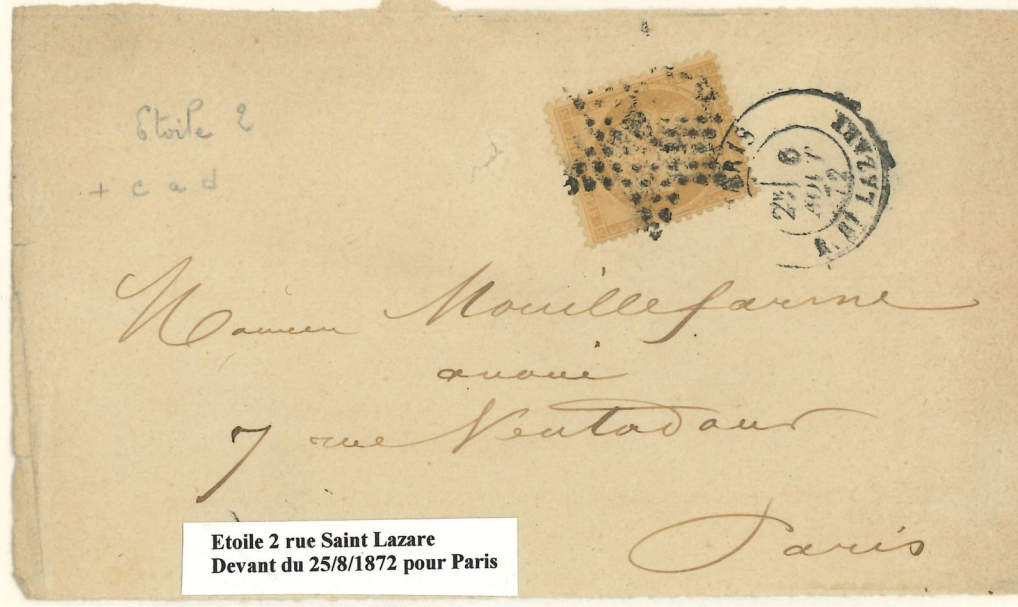 Etoile 2
+ c a d
PARIS
R. ST LAZARE
6
AOUT
72
Monsieur Mouillefarine
avoué
7 rue Ventadour
Paris
Etoile 2 rue Saint Lazare
Devant du 25/8/1872 pour Paris